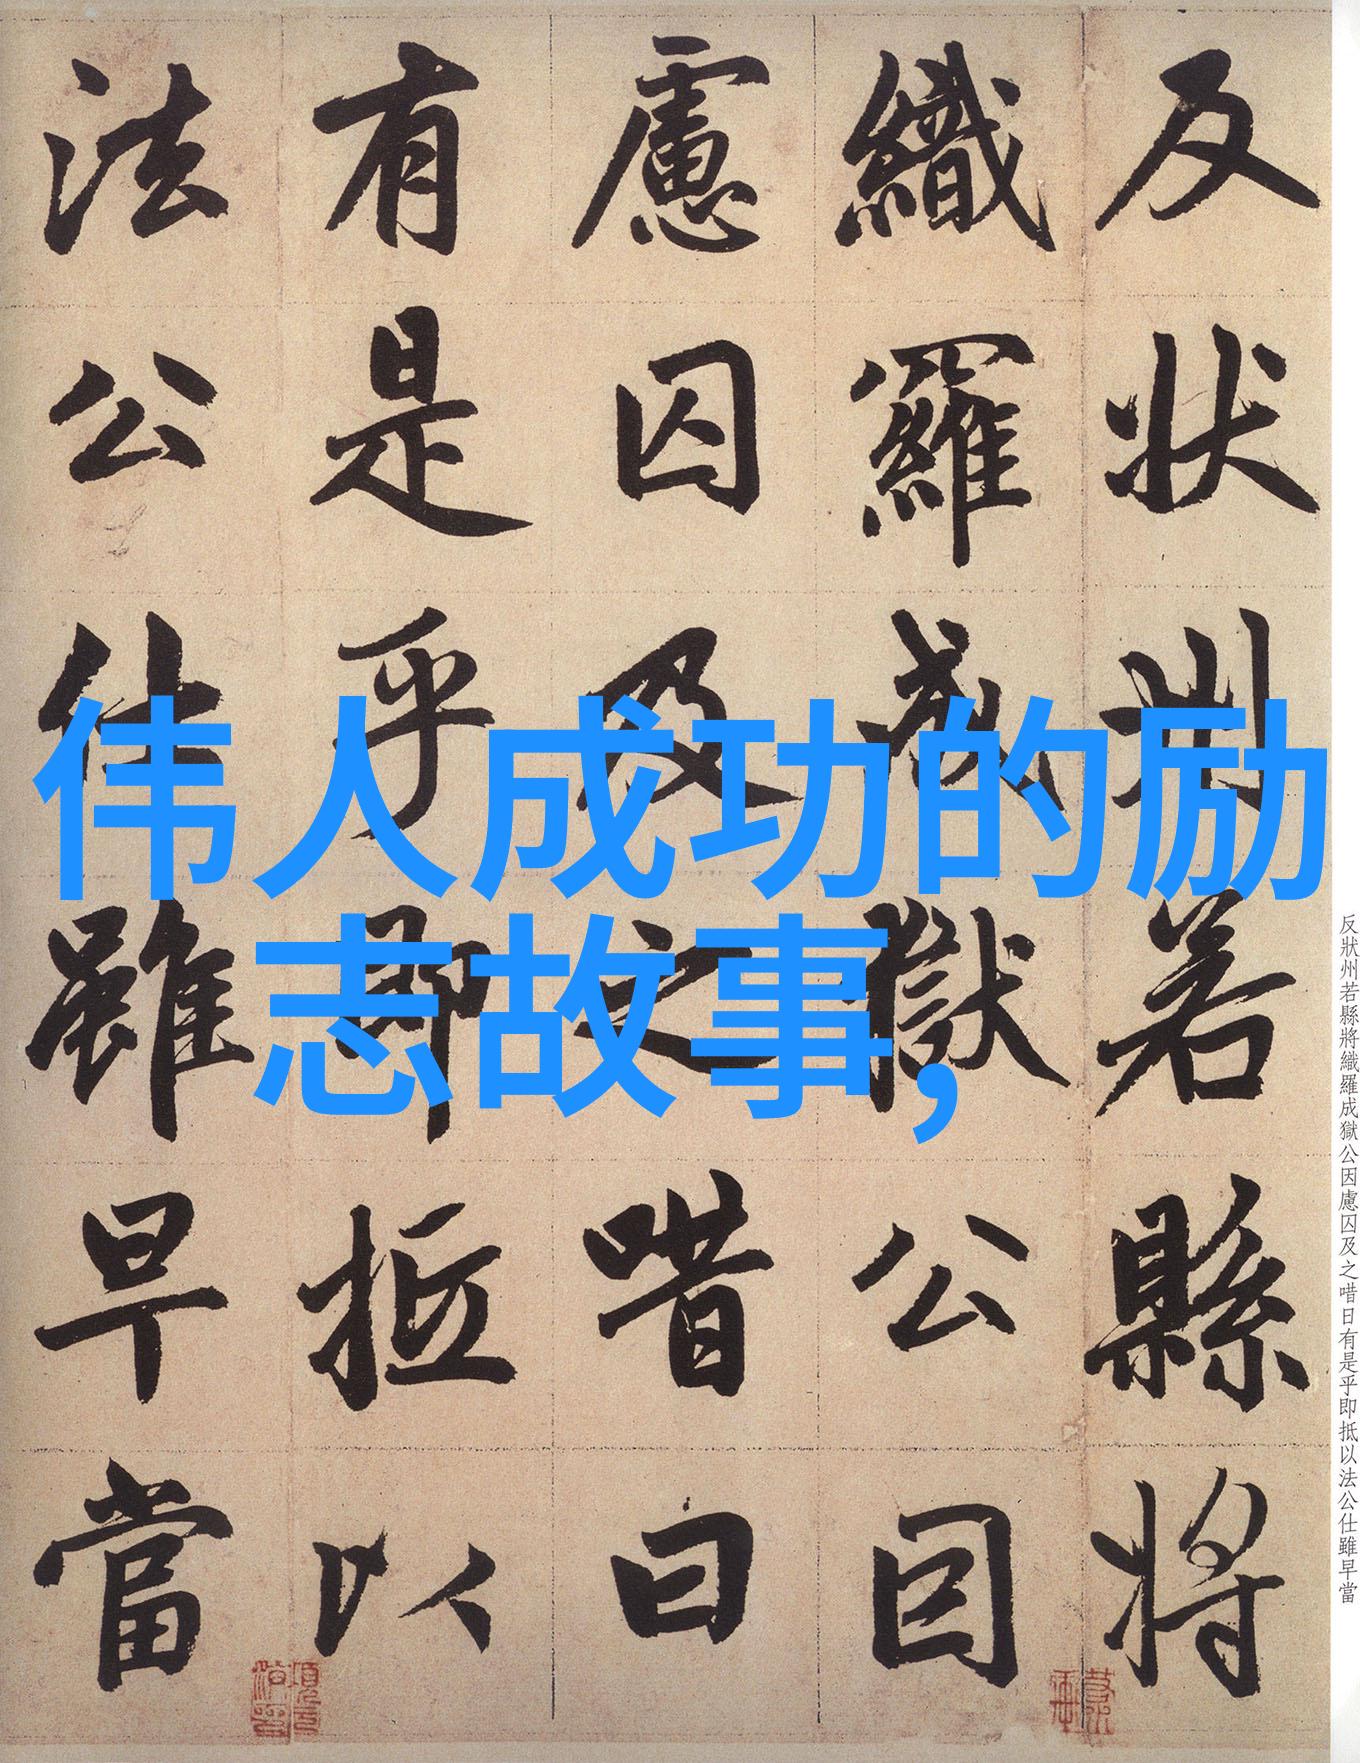 反狀州若縣將
織羅成獄公因
慮囚及之唶日
有是乎即抵以
法公仕雖早當
伟人成功的励
志故事,
反狀州若縣將織羅成獄公因慮囚及之唶日有是乎即抵以法公仕雖早當